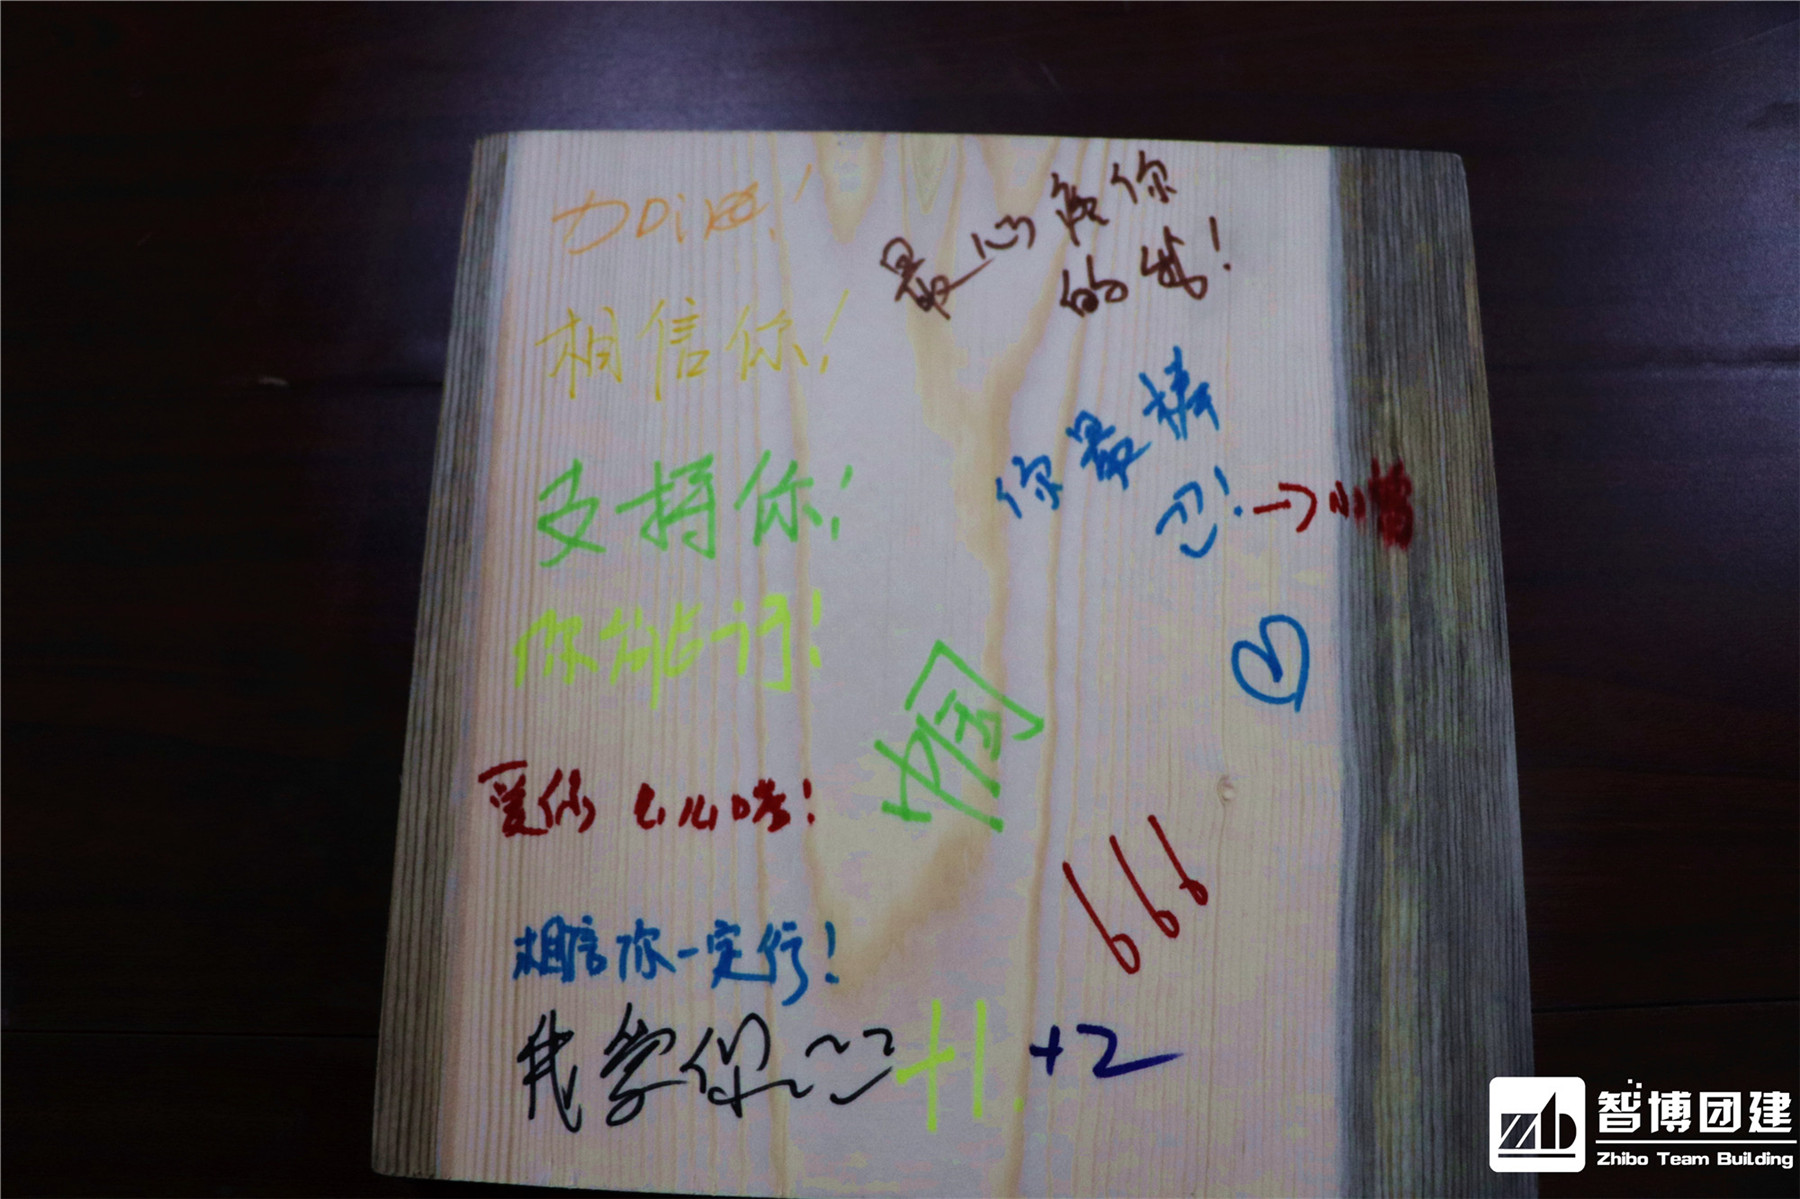 加油!
最心疼你
的我!
相信你!
你最棒
支持你!
你能行!
爱你 心心哒!
666
相信你一定行!
我学你
+1. +2
智博团建
Zhibo Team Building